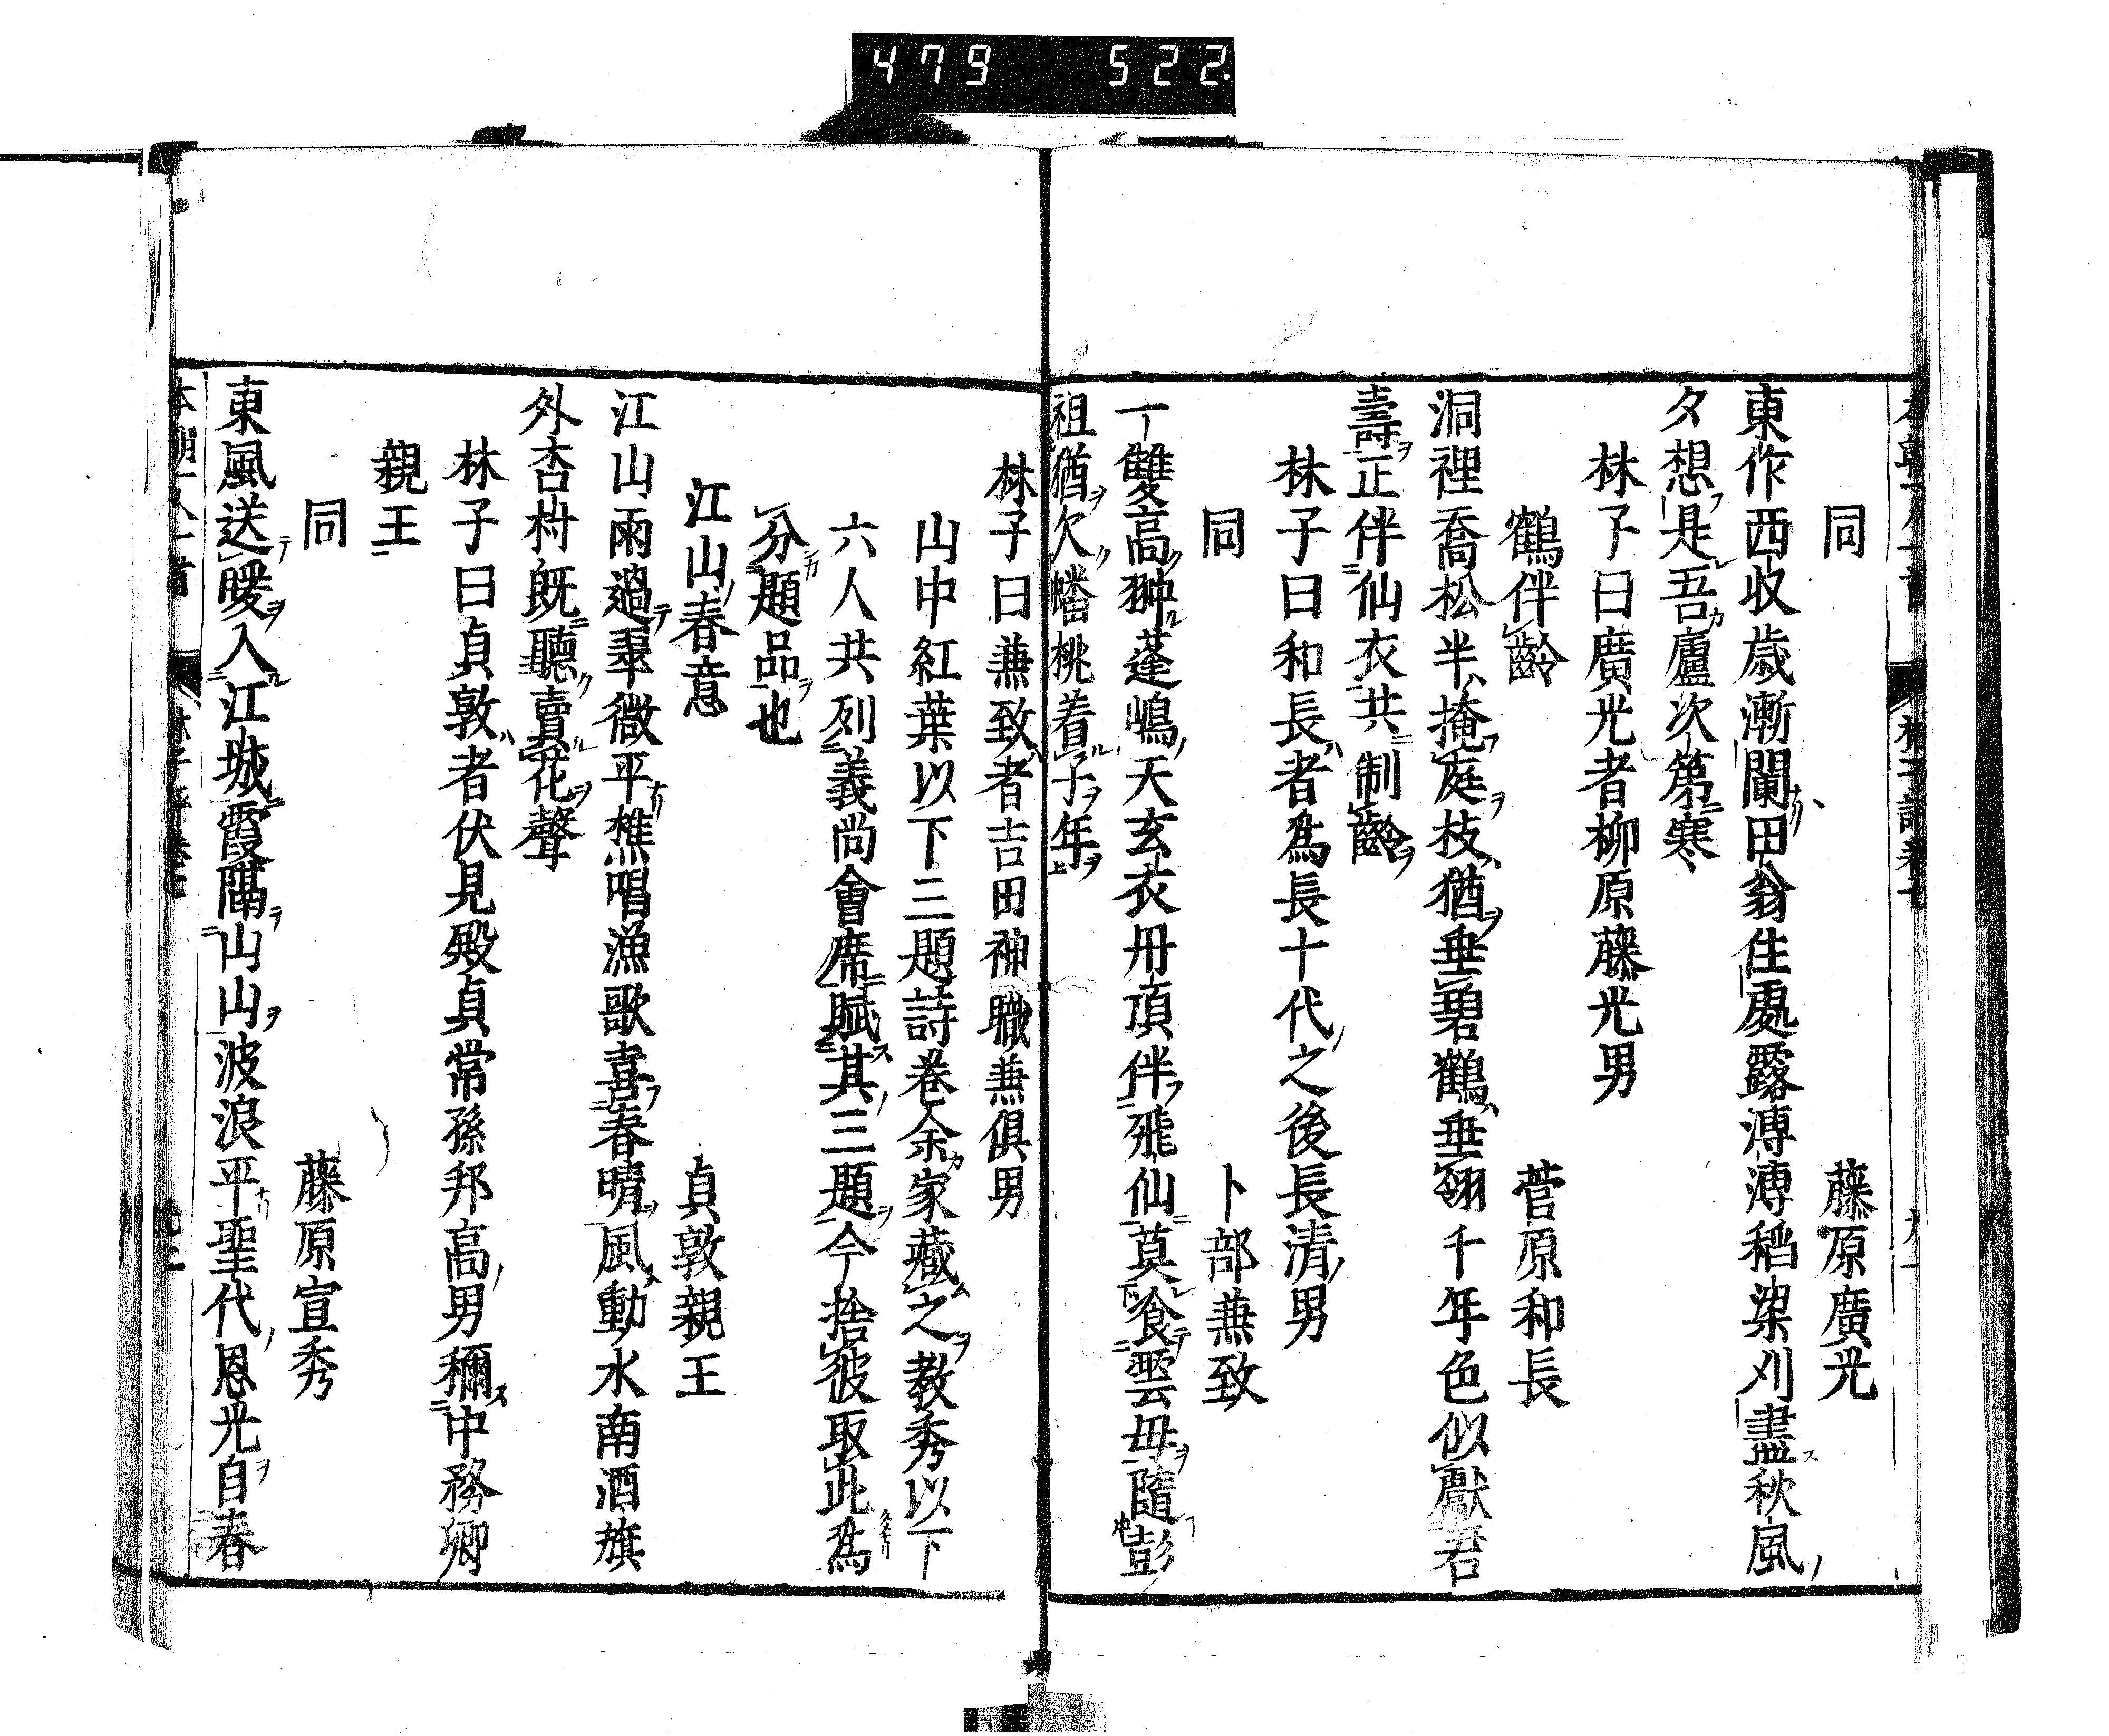 479 522
同 藤原廣光
東作西收歳漸闌田翁住處露漙漙稻梁刈盡秋風
夕想是吾廬次第寒
林子曰廣光者柳原藤光男
鶴伴齡 菅原和長
洞裡喬松半掩庭枝猶垂碧鶴垂翎千年色似獻君
壽正伴仙衣共制齡
林子曰和長者爲長十代之後長清男
同 卜部兼致
一雙高翀蓬嶋天玄衣丹頂伴飛仙莫食雲母隨彭
祖猶欠蟠桃着子年
林子曰兼致者吉田神職兼俱男
山中紅葉以下三題詩卷余家藏之教秀以下
六人共列義尚會席賦其三題今捨彼取此爲
分題品也
江山春意 貞敦親王
江山雨過翠微平樵唱漁歌喜春晴風動水南酒旗
外杏村既聽賣花聲
林子曰貞敦者伏見殿貞常孫邦高男稱中務卿
親王
同 藤原宣秀
東風送暖入江城霞隔山山波浪平聖代恩光自春